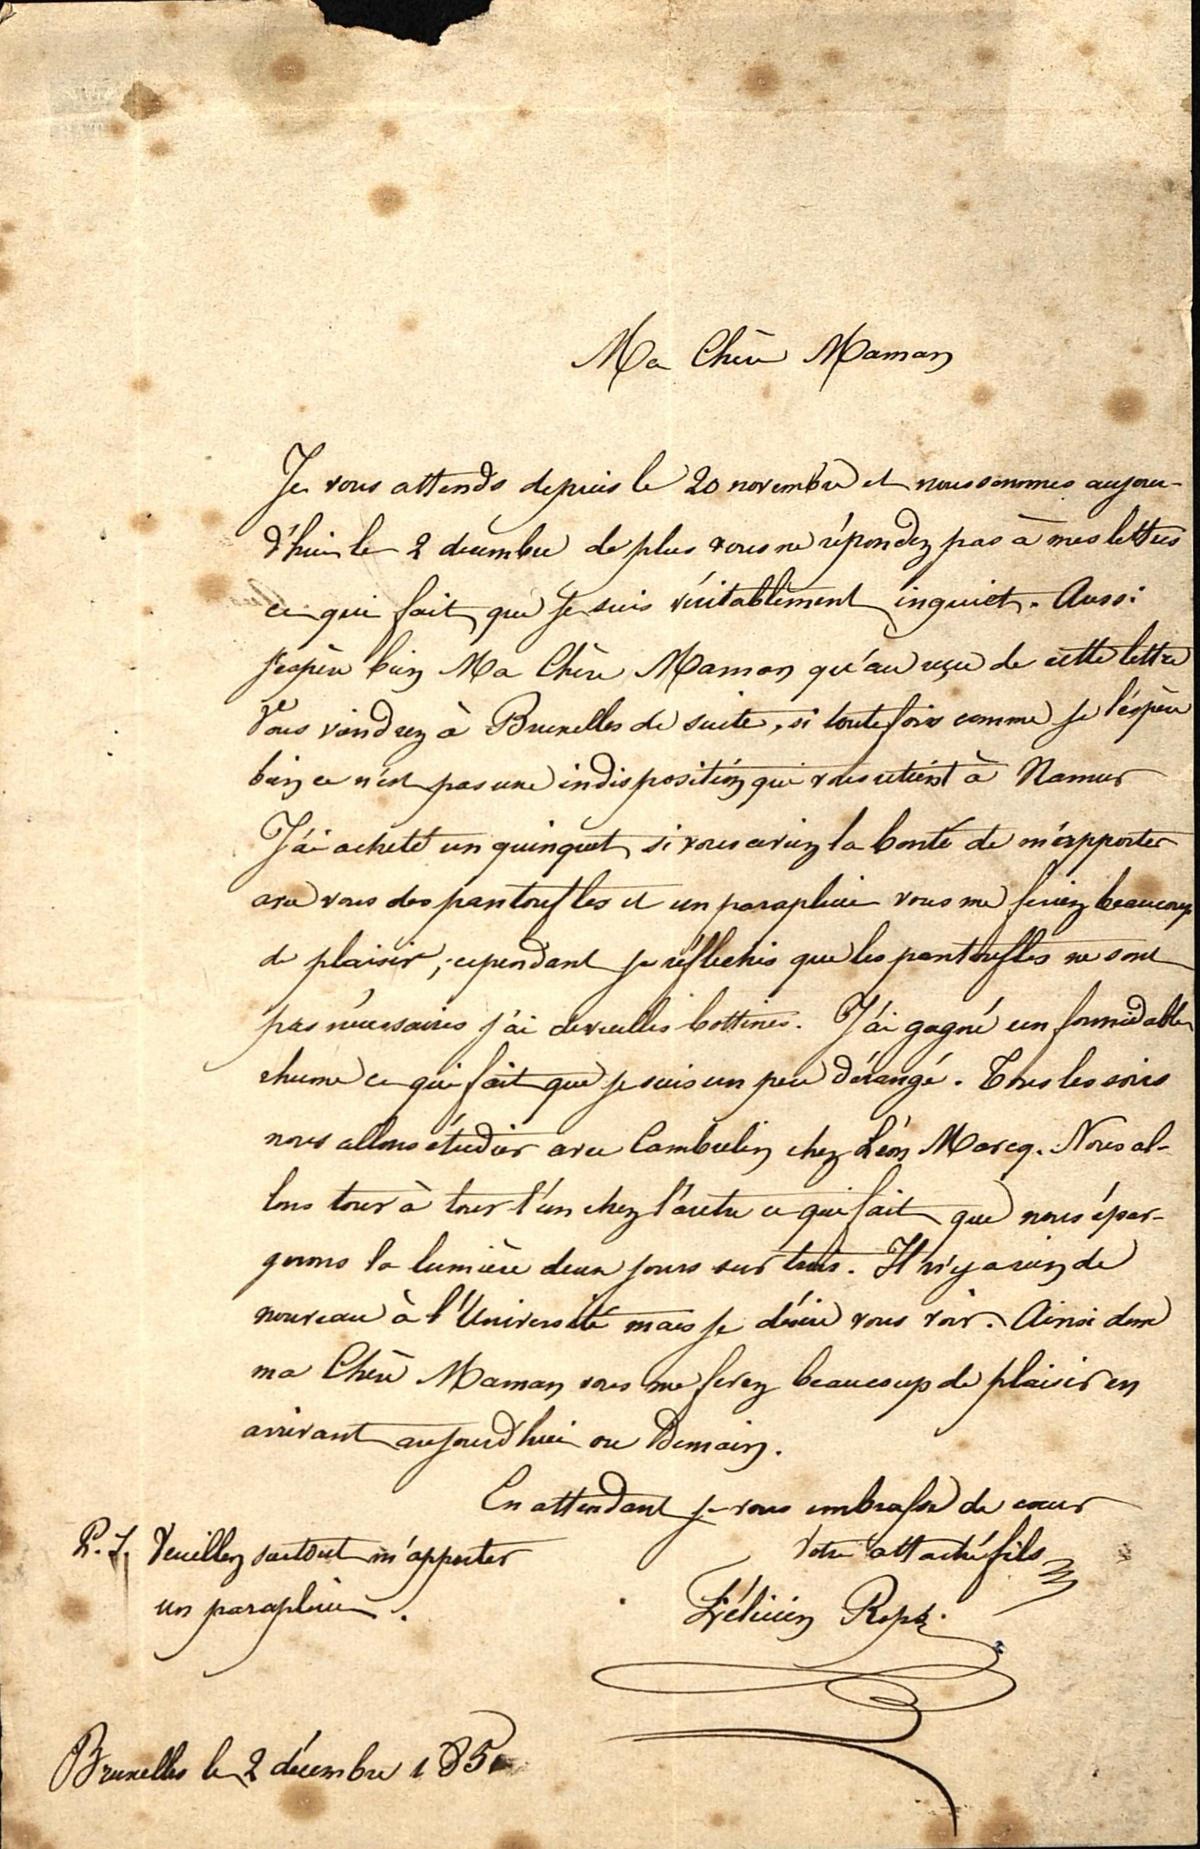 Ma Chère Maman
Je vous attends depuis le 20 novembre et nous sommes aujour-
d'hui le 2 décembre de plus vous ne répondez pas à mes lettres
ce qui fait que je suis véritablement inquiet. Aussi
j'espère bien Ma Chère Maman qu'au reçu de cette lettre
Vous viendrez à Bruxelles de suite, si toutefois comme je l'éspère
bien ce n'est pas une indisposition qui vous retient à Namur
J'ai acheté un quinquet, si vous aviez la bonté de m'apporter
avec vous des pantoufles et un parapluie vous me feriez beaucoup
de plaisir, cependant je réflechis que les pantoufles ne sont
pas nécessaires j'ai de vieilles bottines. J'ai gagné un formidable
rhume ce qui fait que je suis un peu dérangé. Tous les soirs
nous allons étudier avec Cambrelin chez Léon Marcq. Nous al-
lons tour à tour l'un chez l'autre ce qui fait que nous épar-
gnons la lumière deux jours sur trois. Il n'y a rien de
nouveau à l'Université mais je désire vous voir. Ainsi donc
ma Chère Maman vous me ferez beaucoup de plaisir en
arrivant aujourd'hui ou Demain.
En attendant je vous embrasse de cœur
Votre attaché fils
Félicien Rops.
P.S. Veuillez surtout m'apporter
un parapluie.
Bruxelles le 2 décembre 185